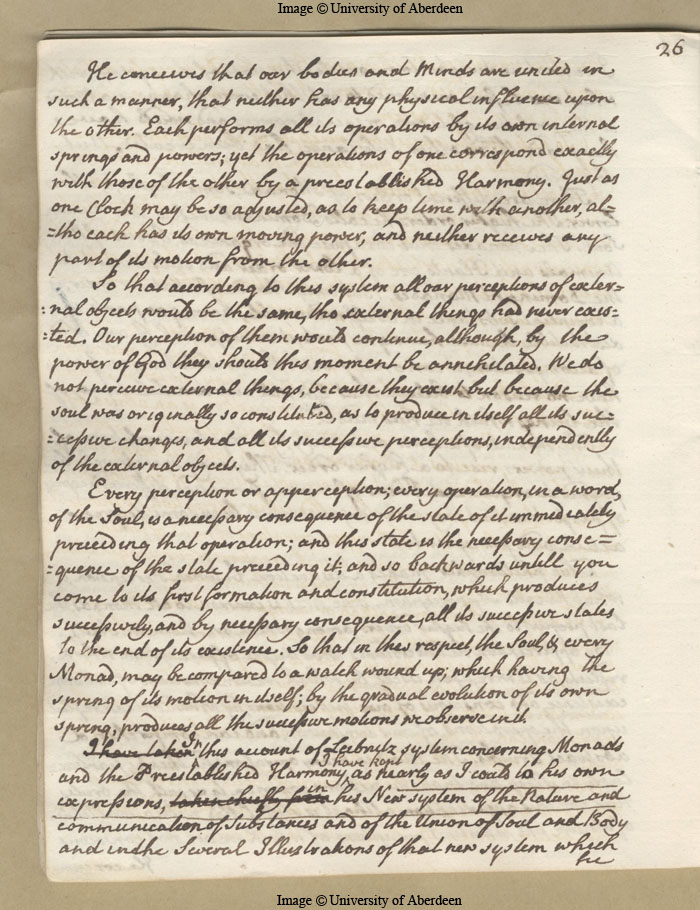 Image © University of Aberdeen
26
He conceives that our bodies and Minds are united in
such a manner, that neither has any physical influence upon
the other. Each performs all its operations by its own internal
springs and powers; yet the operations of one correspond exactly
with those of the other by a preestablished Harmony. Just as
one Clock may be so adjusted, as to keep time with another, al=
=tho each has its own moving power, and neither receives any
part of its motion from the other.
So that according to this system all our perceptions of exter=
=nal objects would be the same, tho external things had never exis=
=ted. Our perception of them would continue, although, by the
power of God they should this moment be annehilated. We do
not perceive external things, because they exist but because the
soul was originally so constituted, as to produce in itself all its suc=
=cessive changes, and all its successive perceptions, independently
of the external objects.
Every perception or apperception; every operation, in a word,
of the Soul, is a necessary consequence of the state of it immediately
preceeding that operation; and this state is the necessary conse=
=quence of the state preceeding it; and so backwards untill you
come to its first formation and constitution, which produces
successively, and by necessary consequence, all its successive states
to the end of its existence. So that in this respect, the Soul, & every
Monad, may be compared to a watch wound up; which having the
spring of its motion in itself; by the gradual evolution of its own
spring, produces all the successive motions we observe in it.
I have taken In this account of Leibnitz system concerning Monads
and the Preestablished Harmony, I have kept as nearly as I could to his own
expressions, taken chiefly from in his New system of the Nature and
communication of Substances and of the Union of Soul and Body
and in the Several Illustrations of that new system which
he
Image © University of Aberdeen